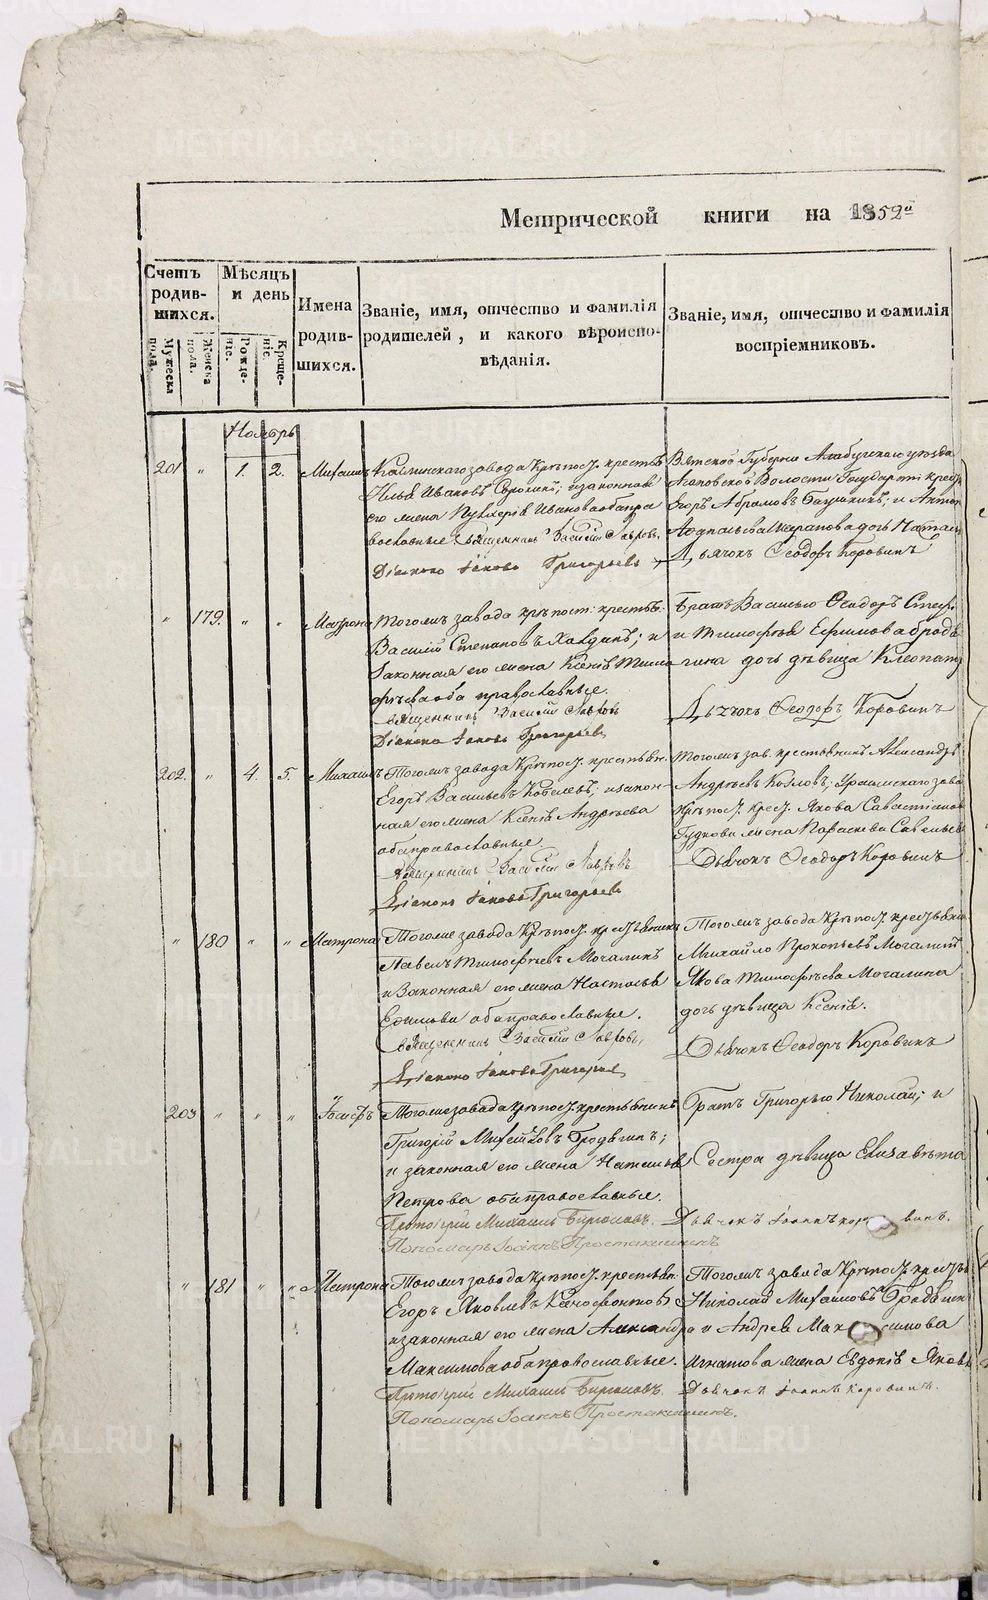 METRIKI.GASO-URAL.RU
Метрической книги на 1852й
Счетъ родив-шихся.
Мужеска пола.
Женска пола.
Мѣсяцъ и день
Рожде-ніе.
Креще-ніе.
Имена родив-шихся.
Званіе, имя, отчество и фамилія
родителей, и какого вѣроиспо-
вѣданія.
Званіе, имя, отчество и фамилія
воспріемниковъ.
Ноябрь
201 " 1. 2. Михаилъ
завода крѣпос. крестьян
Илья Ивановъ Сорокинъ; и законная
его жена Ивановаоба пра
вославные Священникъ Василій Лавровъ
Діаконъ Іаковъ Григорьевъ
Вятской Губерніи уѣзда
Волости Государств. крес.
Егоръ Абрамовъ и
дочь
Дьячокъ Ѳеодоръ Коровинъ
" 179. " " Матрона
Тогожъ завода крѣпост. крестья:
Василій Степановъ и
Законная его жена Ксенія Тимо
фѣева оба православные.
Священникъ Василій Лавровъ
Діаконъ Іаковъ Григорьевъ
Братъ Василью Ѳеодоръ Степ.
и Тимофѣя Ефимова
гина дочь дѣвица Клеопатр
Дьячокъ Ѳеодоръ Коровинъ
202. " 4. 5. Михаилъ
Тогожъ завода Крѣпос. крестьян.
Егоръ Васильевъ Кобелевъ; и закон-
ная его жена Ксенія Андреева
оба православные.
Священникъ Василій Лавровъ
Діаконъ Іаковъ Григорьевъ
Тогожъ зав. крестьянинъ Александръ
Андреевъ Козловъ; завo
Крѣпос. крес. Якова Савастіанов
Гудкова жена Параскева Савельев
Дьячокъ Ѳеодоръ Коровинъ
" 180 " " Матрона
Тогоже завода Крѣпос. крестьянинъ
Павелъ Тимофѣевъ Мочалинъ
и Законная его жена Настасья
Ефимова оба православные.
Священникъ Василій Лавровъ,
Діаконъ Іаковъ Григорьев
Тогожъ завода Крѣпос. крестьянин
Михайло Прокопьевъ Мочалин
Якова Тимофѣева Мочалина
дочь дѣвица Ксенія.
Дьячокъ Ѳеодоръ Коровинъ
203 " " " Іосифъ
Тогоже завода крѣпос. крестьянинъ
Григорій Михайловъ Бродягинъ;
и законная его жена Наталья
Петрова оба православные.
Протоіерей Михаилъ Бирюковъ.
Пономарь Іоаннъ Простакишинъ
Братъ Григорью Николай; и
Сестра дѣвица Елисавета
Дьячокъ Іоаннъ Коровинъ.
" 181 " " Матрона
Тогожъ завода Крѣпос. крестьян.
Егоръ Яковлевъ Ксенофонтовъ
и законная его жена Александра
Максимова оба православные.
Протоіерей Михаилъ Бирюковъ.
Пономарь Іоаннъ Простакишинъ.
Тогожъ завода Крѣпос. крестья
Николай Михайловъ Бродягин
и Андрея Максимова
Игнатова жена Евдокія Яковл
Дьячокъ Іоаннъ Коровинъ.